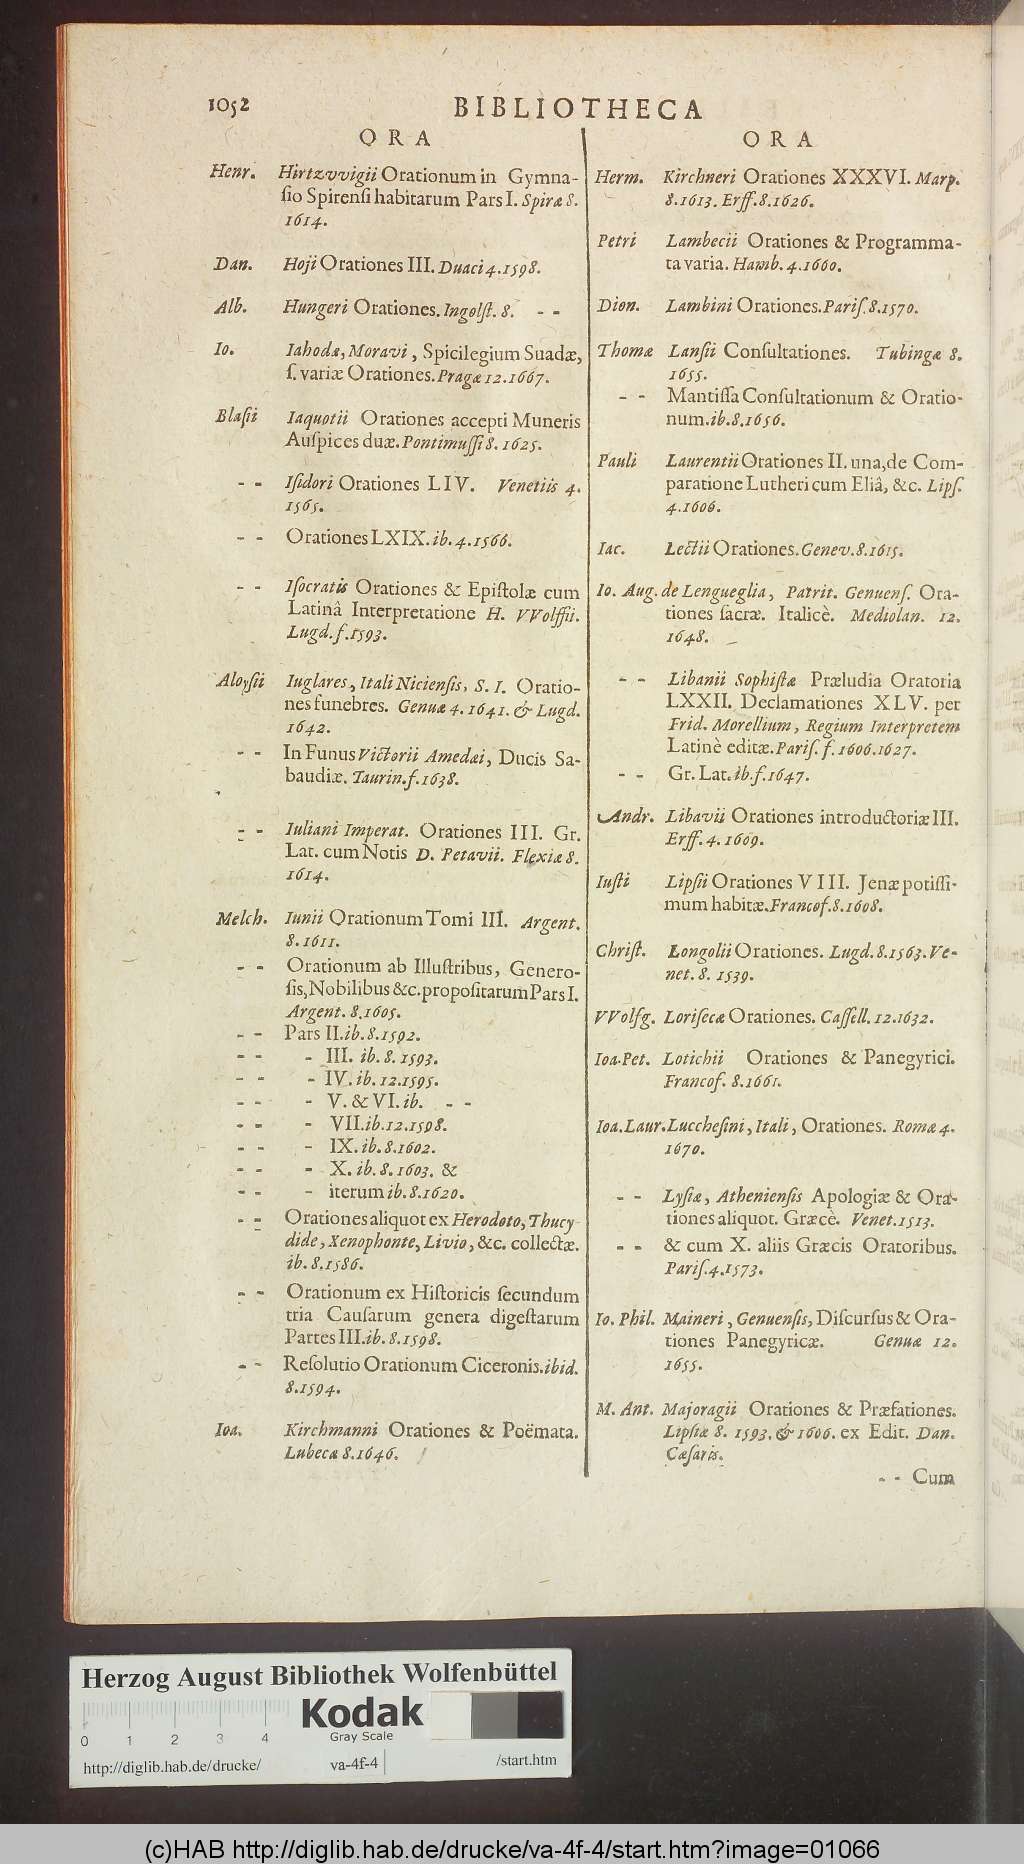 1052
BIBLIOTHECA
ORA
Henr. Hirtzvvigii Orationum in Gymna-
ſio Spirenſi habitarum Pars I. Spiræ 8.
1614.
Dan. Hoji Orationes III. Duaci 4. 1598.
Alb. Hungeri Orationes. Ingolſt. 8. - -
Io. Iahodæ, Moravi, Spicilegium Suadæ,
ſ. variæ Orationes. Pragæ 12. 1667.
Blaſii Iaquotii Orationes accepti Muneris
Auſpices duæ. Pontimuſſi 8. 1625.
- - Iſidori Orationes LIV. Venetiis 4.
1565.
- - Orationes LXIX. ib. 4. 1566.
- - Iſocratis Orationes & Epiſtolæ cum
Latinâ Interpretatione H. VVolffii.
Lugd. f. 1593.
Aloyſii Iuglares, Itali Nicienſis, S. I. Oratio-
nes funebres. Genuæ 4. 1641. & Lugd.
1642.
- - In Funus Victorii Amedæi, Ducis Sa-
baudiæ. Taurin. f. 1638.
- - Iuliani Imperat. Orationes III. Gr.
Lat. cum Notis D. Petavii. Flexiæ 8.
1614.
Melch. Iunii Orationum Tomi III. Argent.
8. 1611.
- - Orationum ab Illuſtribus, Genero-
ſis, Nobilibus &c. propoſitarum Pars I.
Argent. 8. 1605.
- - Pars II. ib. 8. 1592.
- - - III. ib. 8. 1593.
- - - IV. ib. 12. 1595.
- - - V. & VI. ib. - -
- - - VII. ib. 12. 1598.
- - - IX. ib. 8. 1602.
- - - X. ib. 8. 1603. &
- - - iterum ib. 8. 1620.
- - Orationes aliquot ex Herodoto, Thucy-
dide, Xenophonte, Livio, &c. collectæ.
ib. 8. 1586.
- - Orationum ex Hiſtoricis ſecundum
tria Cauſarum genera digeſtarum
Partes III. ib. 8. 1598.
- - Reſolutio Orationum Ciceronis. ibid.
8. 1594.
Ioa. Kirchmanni Orationes & Poëmata.
Lubecæ 8. 1646.
ORA
Herm. Kirchneri Orationes XXXVI. Marp.
8. 1613. Erff. 8. 1626.
Petri Lambecii Orationes & Programma-
ta varia. Hamb. 4. 1660.
Dion. Lambini Orationes. Pariſ. 8. 1570.
Thomæ Lanſii Conſultationes. Tubingæ 8.
1655.
- - Mantiſſa Conſultationum & Oratio-
num. ib. 8. 1656.
Pauli Laurentii Orationes II. una, de Com-
paratione Lutheri cum Eliâ, &c. Lipſ.
4. 1606.
Iac. Lectii Orationes. Genev. 8. 1615.
Io. Aug. de Lengueglia, Patrit. Genuenſ. Ora-
tiones ſacræ. Italicè. Mediolan. 12.
1648.
- - Libanii Sophiſtæ Præludia Oratoria
LXXII. Declamationes XLV. per
Frid. Morellium, Regium Interpretem
Latinè editæ. Pariſ. f. 1606. 1627.
- - Gr. Lat. ib. f. 1647.
Andr. Libavii Orationes introductoriæ III.
Erff. 4. 1609.
Iuſti Lipſii Orationes VIII. Jenæ potiſſi-
mum habitæ. Francof. 8. 1608.
Chriſt. Longolii Orationes. Lugd. 8. 1563. Ve-
net. 8. 1539.
VVolfg. Loriſecæ Orationes. Caſſell. 12. 1632.
Ioa. Pet. Lotichii Orationes & Panegyrici.
Francof. 8. 1661.
Ioa. Laur. Luccheſini, Itali, Orationes. Romæ 4.
1670.
- - Lyſiæ, Athenienſis Apologiæ & Ora-
tiones aliquot. Græcè. Venet. 1513.
- - & cum X. aliis Græcis Oratoribus.
Pariſ. 4. 1573.
Io. Phil. Maineri, Genuenſis, Diſcurſus & Ora-
tiones Panegyricæ. Genuæ 12.
1655.
M. Ant. Majoragii Orationes & Præfationes.
Lipſiæ 8. 1593. & 1606. ex Edit. Dan.
Cæſaris.
- - Cum
Herzog August Bibliothek Wolfenbüttel
0 1 2 3 4
Kodak
Gray Scale
http://diglib.hab.de/drucke/ va-4f-4 /start.htm
(c)HAB http://diglib.hab.de/drucke/va-4f-4/start.htm?image=01066